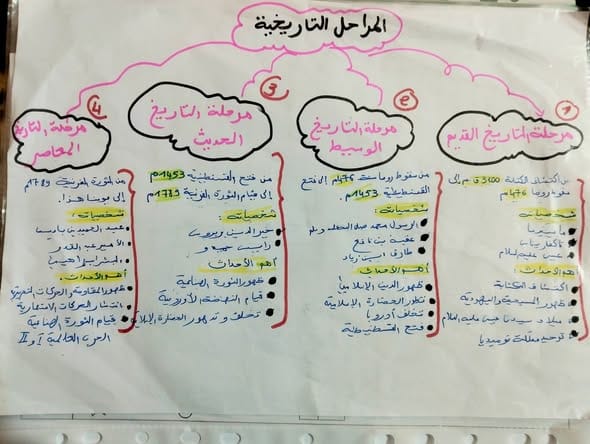 المراحل التاريخية
1
مرحلة التاريخ القديم
من اكتشاف الكتابة 3200 ق م إلى
سقوط روما 476م
شخصيات:
ماسينيسا
تاكفاريناس
عيسى عليه السلام
أهم الأحداث:
اكتشاف الكتابة
ظهور المسيحية واليهودية
ميلاد سيدنا عيسى عليه السلام
توحيد مملكة نوميديا
2
مرحلة التاريخ
الوسيط
من سقوط روما سنة 476م إلى فتح
القسطنطينية 1453م.
شخصيات:
الرسول محمد صلى الله عليه وسلم
عقبة بن نافع
طارق ابن زياد
أهم الأحداث:
ظهور الدين الإسلامي
تطور الحضارة الإسلامية
تخلف أوروبا
فتح القسطنطينية
3
مرحلة التاريخ
الحديث
من فتح القسنطينية 1453م
إلى قيام الثورة الفرنسية 1789م
شخصيات:
خير الدين بربروس
رايس حميدو
أهم الأحداث
ظهور الثورة الصناعية
قيام النهضة الأوروبية
تخلف وتدهور الحضارة الإسلامية
4
مرحلة التاريخ
المعاصر
من الثورة الفرنسية 1789م
إلى يومنا هذا.
شخصيات:
عبد الحميد بن باديس
الأمير عبد القدر
البشير الإبراهيمي
أهم الأحداث:
ظهور المقاومة والحركات التحررية
انتشار الحركات الاستعمارية
قيام الثورة الصناعية
الحرب العالمية I و II